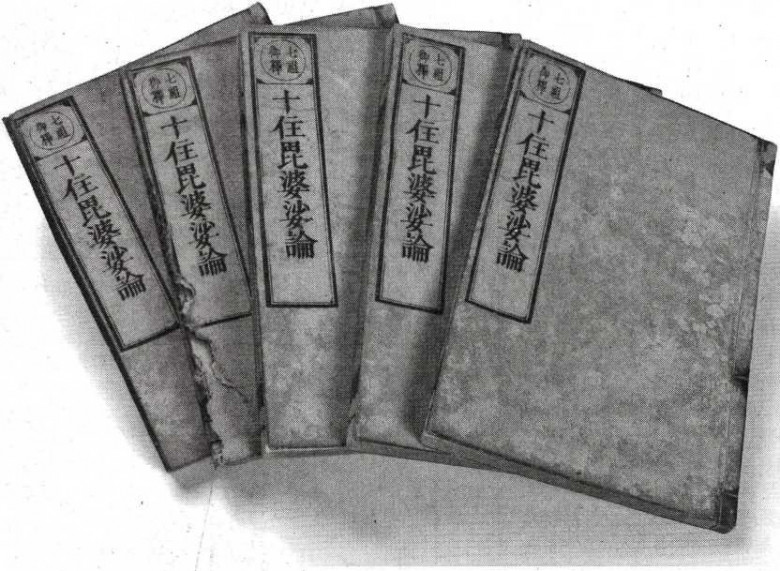 七祖
御釋
十住毘婆娑論
七祖
御釋
十住毘婆娑論
七祖
御釋
十住毘婆娑論
七祖
御釋
十住毘婆娑論
七祖
御釋
十住毘婆娑論